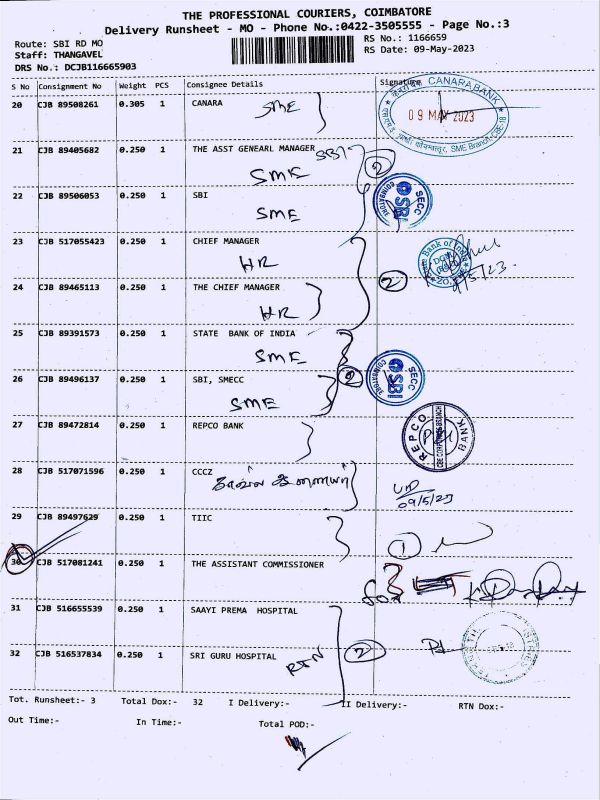 THE PROFESSIONAL COURIERS, COIMBATORE
Delivery Runsheet - MO - Phone No.:0422-3505555 - Page No.:3
Route: SBI RD MO
Staff: THANGAVEL
DRS No.: DCJB116665903
RS No.: 1166659
RS Date: 09-May-2023
S No Consignment No Weight PCS Consignee Details Signature
20 CJB 89508261 0.305 1 CANARA SME
CANARA BANK
09 MAY 2023
SME Branch-CBE-18
21 CJB 89405682 0.250 1 THE ASST GENEARL MANAGER SBI
SME
2
22 CJB 89506053 0.250 1 SBI
SME
SECC
SBI
COIMBATORE
23 CJB 517055423 0.250 1 CHIEF MANAGER
HR
Bank of India
24 CJB 89465113 0.250 1 THE CHIEF MANAGER
HR
2
25 CJB 89391573 0.250 1 STATE BANK OF INDIA
SME
26 CJB 89496137 0.250 1 SBI, SMECC
SME
2
SECC
SBI
COIMBATORE
27 CJB 89472814 0.250 1 REPCO BANK
REPCO BANK
CBE CORPORATE BRANCH
28 CJB 517071596 0.250 1 CCCZ
09/5/23
29 CJB 89497629 0.250 1 TIIC
1
30 CJB 517081241 0.250 1 THE ASSISTANT COMMISSIONER
for
31 CJB 516655539 0.250 1 SAAYI PREMA HOSPITAL
32 CJB 516537834 0.250 1 SRI GURU HOSPITAL
RTN
2
Tot. Runsheet:- 3 Total Dox:- 32 I Delivery:- II Delivery:- RTN Dox:-
Out Time:- In Time:- Total POD:-